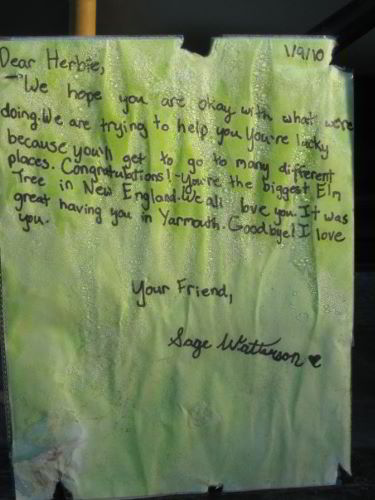 1/9/10
Dear Herbie,
-We hope you are okay with what we're
doing. We are trying to help you. You're lucky
because you'll get to go to many different
places. Congratulations!-You're the biggest Elm
Tree in New England. We all love you. It was
great having you in Yarmouth. Goodbye! I love
you.
Your Friend,
Sage Watterson ♥